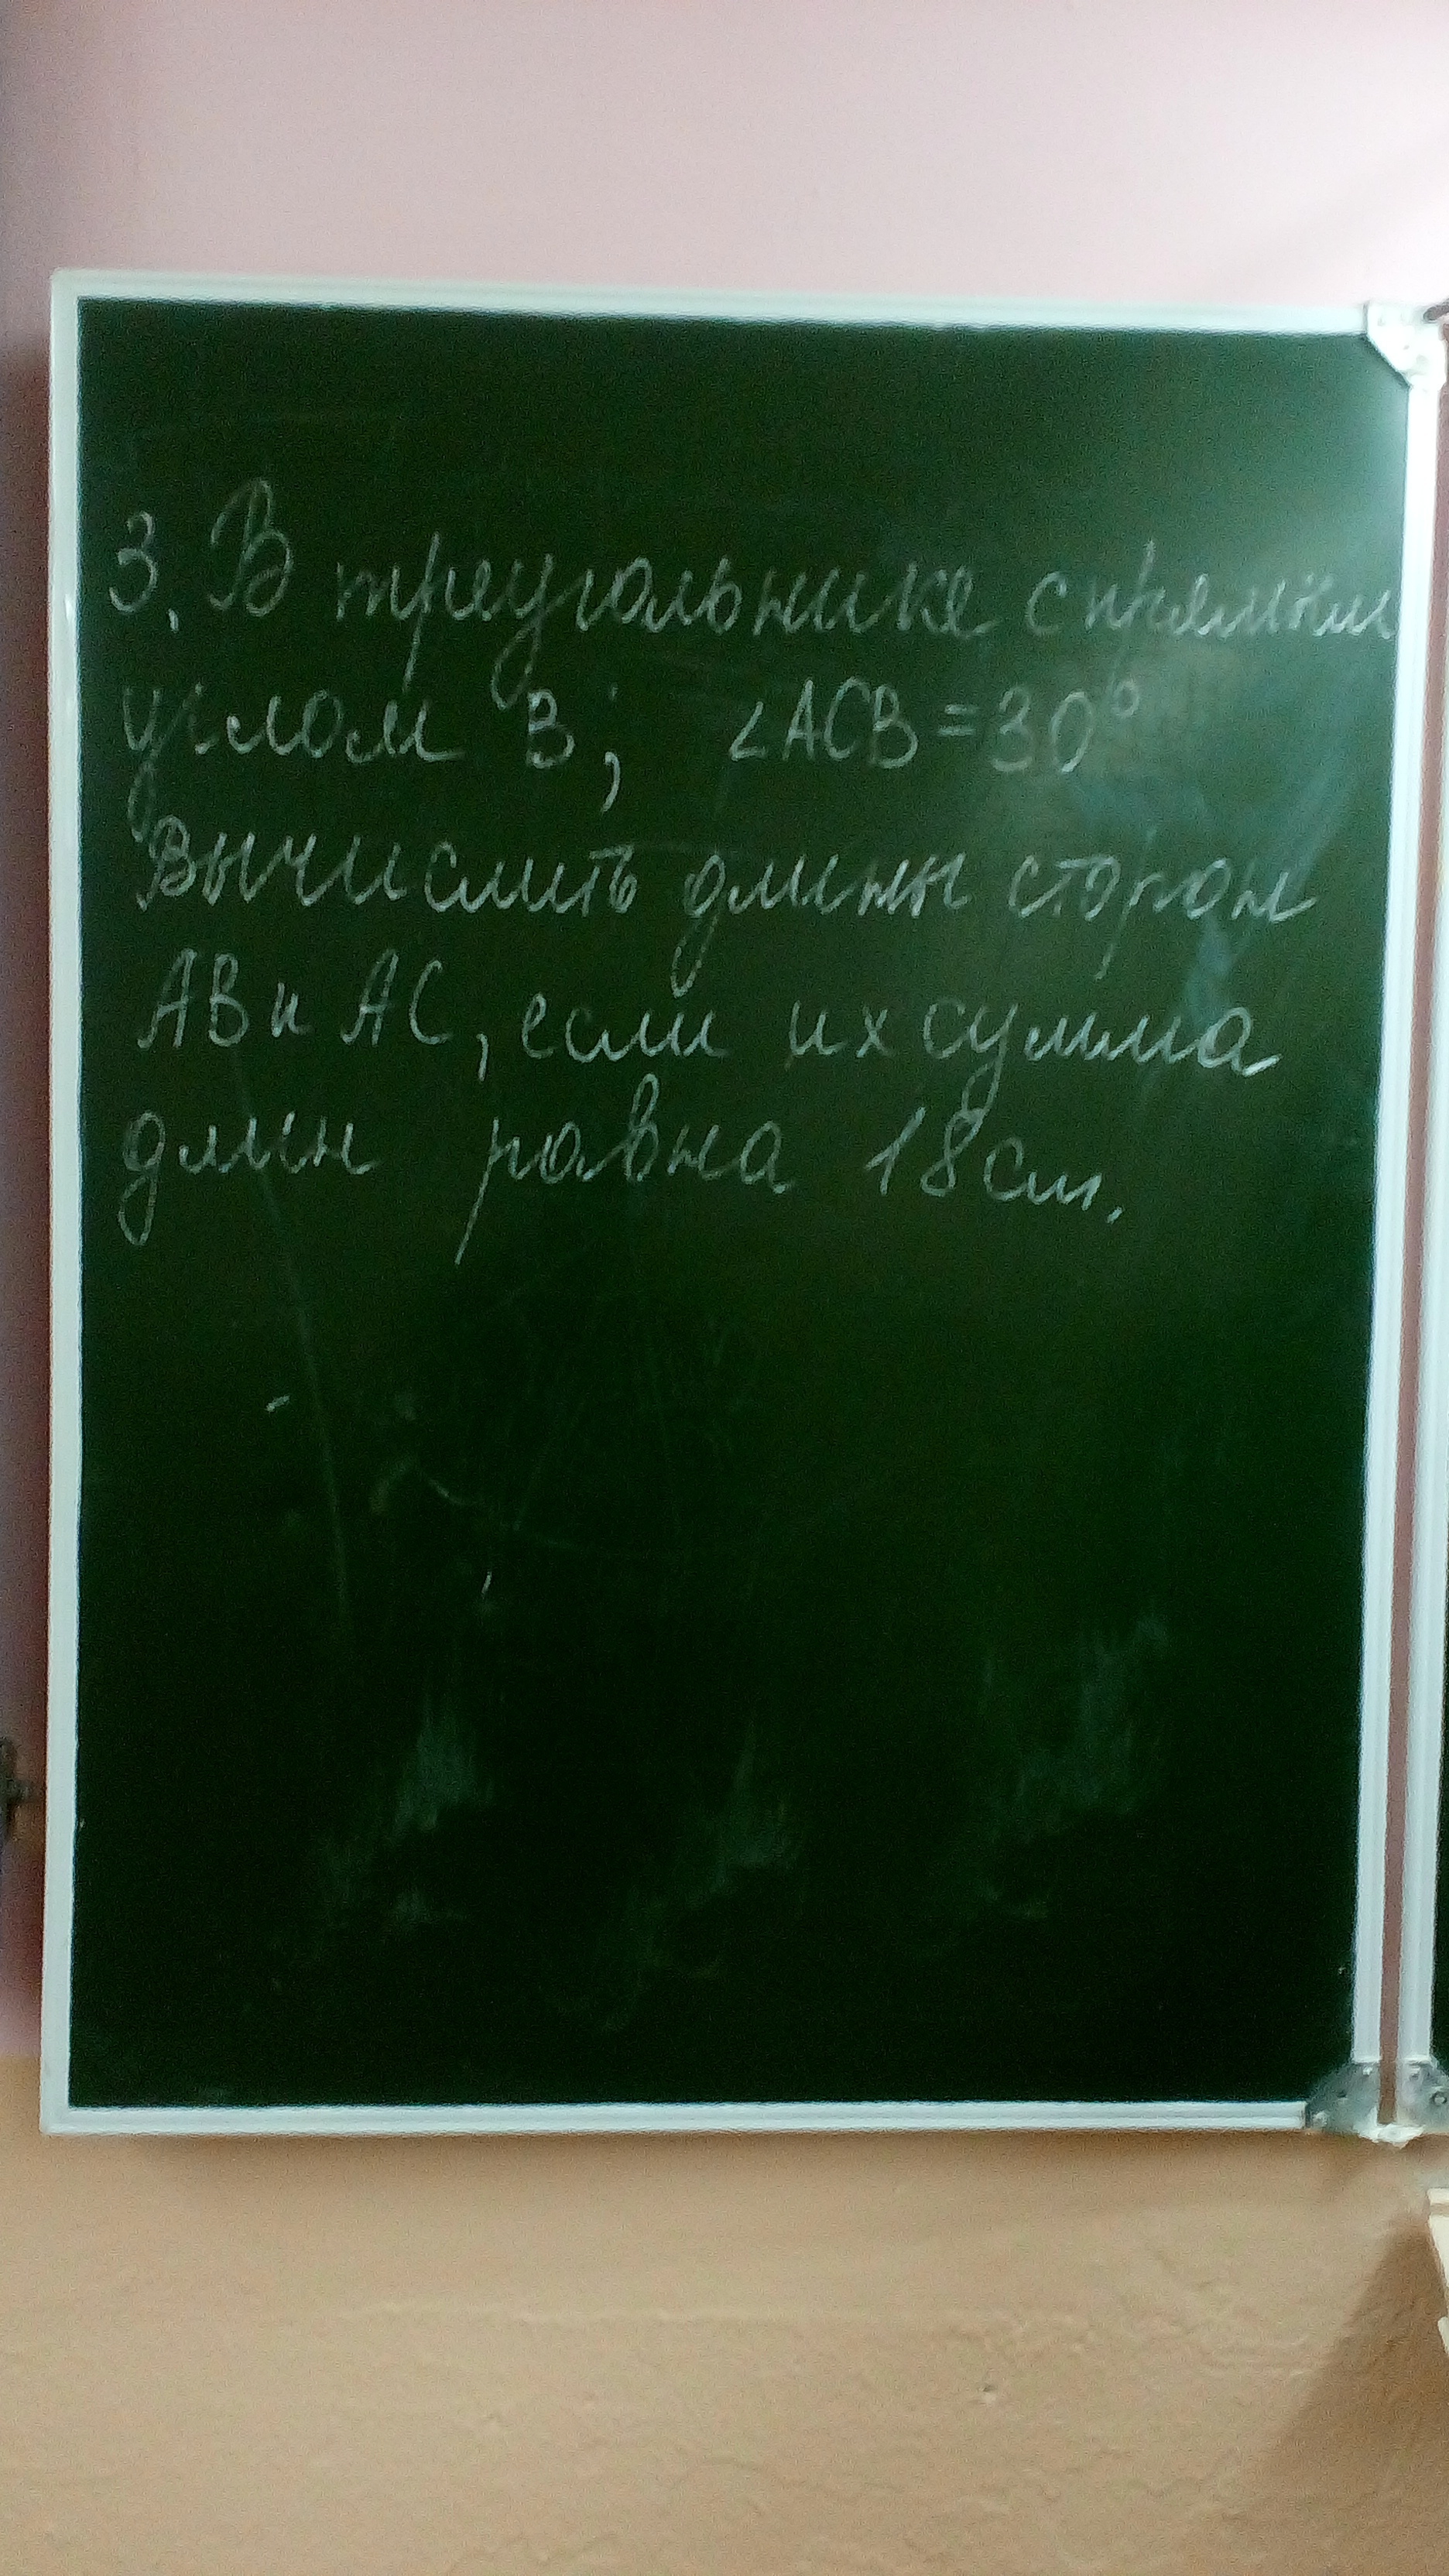 3. В треугольнике с прямым
углом В; ∠АСВ = 30°
Вычислить длины сторон
АВ и АС, если их сумма
длин равна 18см.